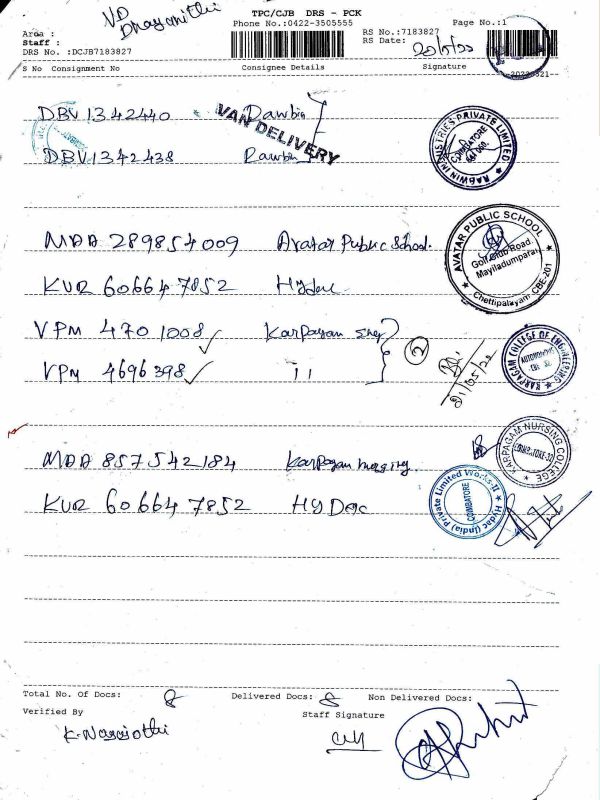 VD
Dhayanithi
TPC/CJB DRS - PCK
Phone No.:0422-3505555
Page No.:1
Area :
Staff :
DRS No. :DCJB7183827
RS No.:7183827
RS Date: 20/5/22
S No Consignment No Consignee Details Signature
DBV 1342440 Rawbin
VAN DELIVERY
DBV1342438 Rawbin
RABWIN INDUSTRIES PRIVATE LIMITED
COIMBATORE
MDD 289854009 Avatar Public School.
AVATAR PUBLIC SCHOOL
Golf Club Road.
Mayiladumparai
Chettipalayam, CBE-201
KUR 606647852 Hydac
VPM 4701008 Karpagam
VPM 4696398 11
2
21/05/22
KARPAGAM COLLEGE OF ENGINEERING
AUTONOMOUS
CBE 32
MDD 857542184 Karpagam nursing.
KARPAGAM NURSING COLLEGE
KUR 606647852 HYDac
Hydac (India) Private Limited Works-II
COIMBATORE
Total No. Of Docs: 8 Delivered Docs: 8 Non Delivered Docs:
Verified By Staff Signature